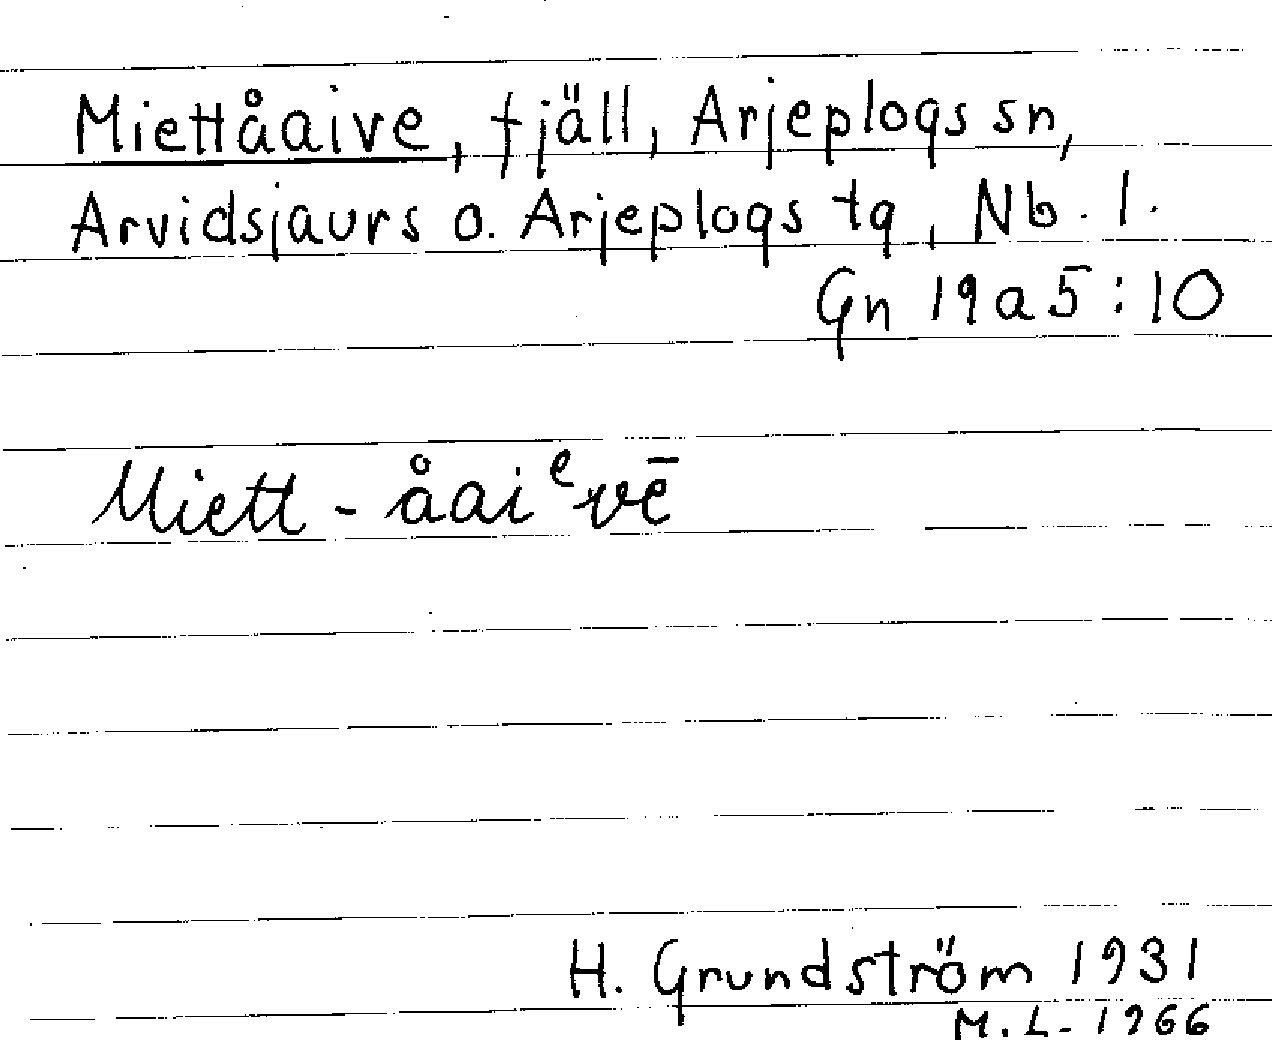 Miettåaive, fjäll, Arjeplogs sn,
Arvidsjaurs o. Arjeplogs tg, Nb. l.
Gn 19a5:10
Miett-åaiᵉvē
H. Grundström 1931
M.L. 1966